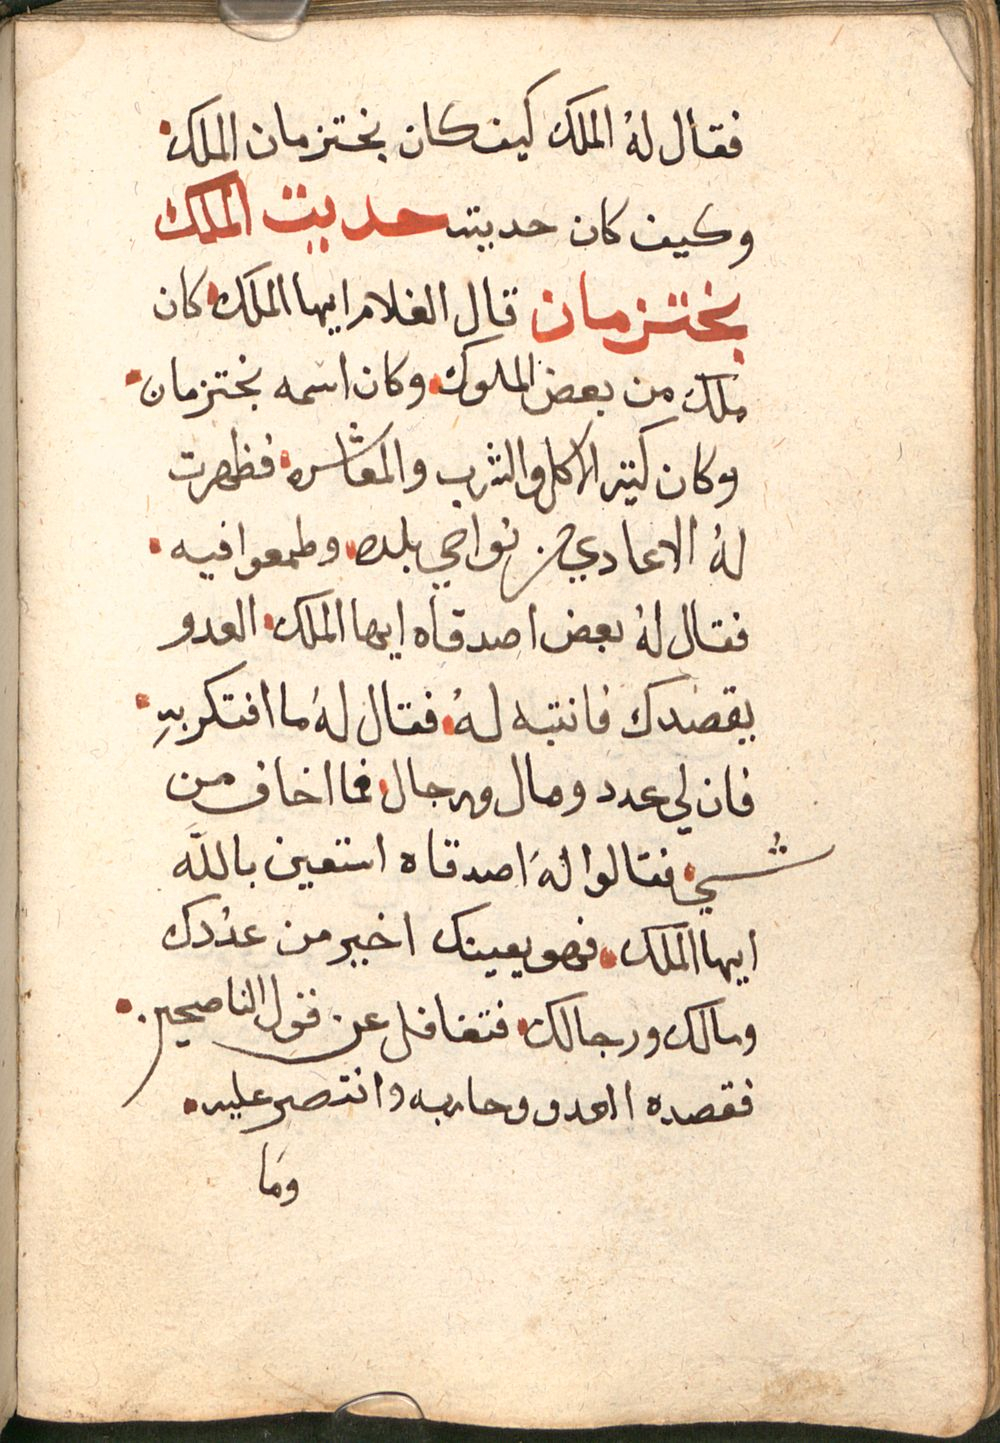 فقال لهُ الملك كيف كان بختزمان الملك
وكيف كان حديته حديت الملك
بختزمان قال الغلام ايها الملك كان
ملك من بعض الملوك وكان اسمه بختزمان
وكان كتير الاكل والشرب والمعاشره فظهرت
لهُ الاعادي من نواحي بلده وطمعوا فيه
فقال لهُ بعض اصدقاه ايها الملك العدو
يقصدك فانتبه لهُ فقال لهُ ما افتكر بهِ
فان لي عدد ومال ورجال فما اخاف من
شي فقالوا لهُ اصدقاه استعين باللَّه
ايها الملك فهو يعينك اخير من عدُدك
ومالك ورجالك فتغافل عن قول الناصحين
فقصده العدو وحاربه وانتصر عليه
ومَا